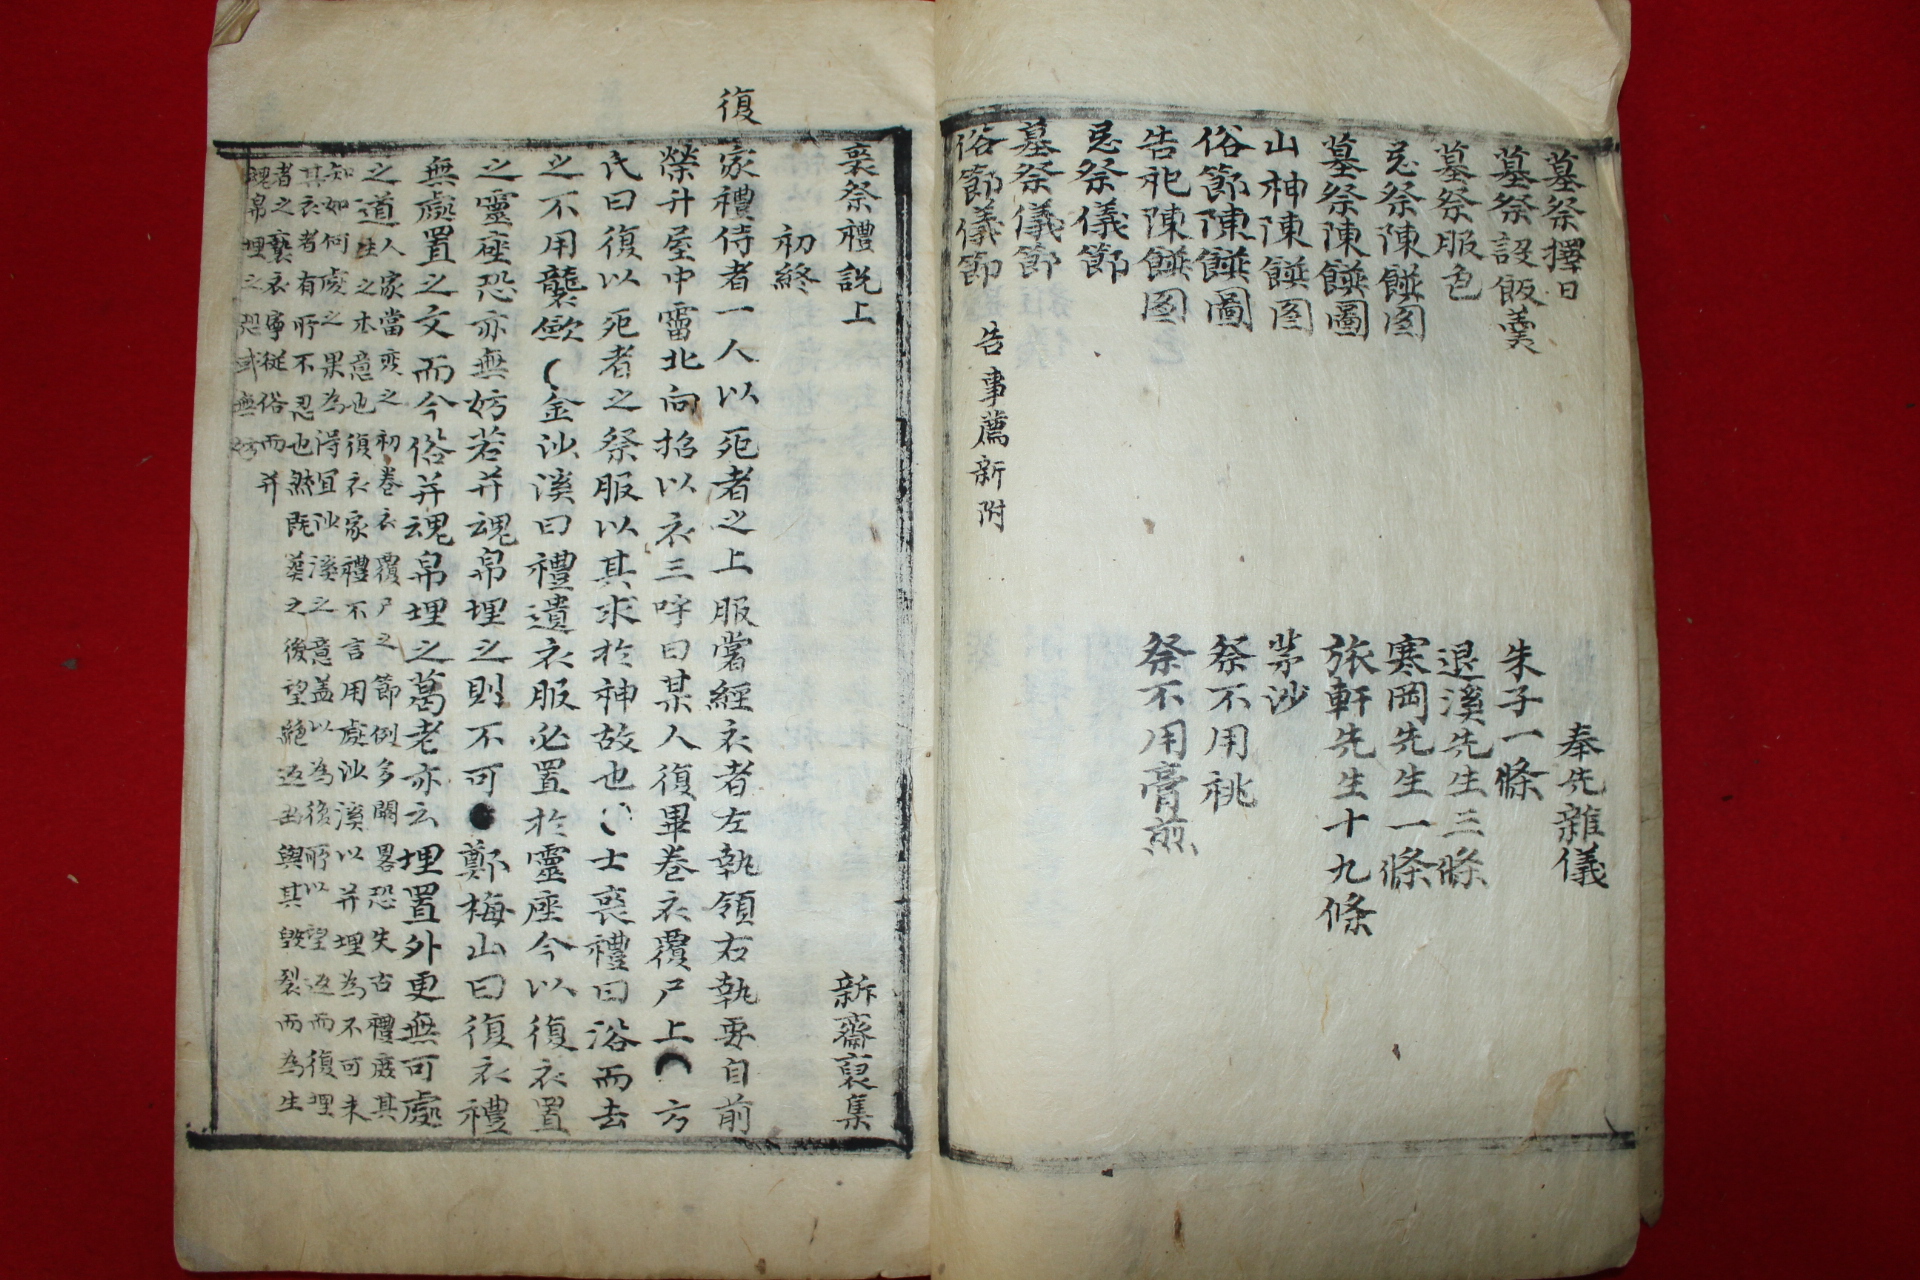 墓祭擇日
墓祭設飯羹
墓祭服色
忌祭陳饌图
墓祭陳饌圖
山神陳饌图
俗節陳饌圖
告祀陳饌图
忌祭儀節
墓祭儀節
俗節儀節 告事薦新附
奉先雜儀
朱子一條
退溪先生三條
寒岡先生一條
旅軒先生十九條
茅沙
祭不用桃
祭不用膏煎
喪祭禮說上 新齋裒集
初終
復
家禮侍者一人以死者之上服嘗經衣者左執領右執要自前
榮升屋中霤北向招以衣三呼曰某人復畢卷衣覆尸上 方
氏曰復以死者之祭服以其求於神故也 士喪禮曰浴而去
之不用襲斂 金沙溪曰禮遺衣服必置於靈座今以復衣置
之靈座恐亦無妨若并魂帛埋之則不可 鄭梅山曰復衣禮
無處置之文而今俗并魂帛埋之葛老亦云埋置外更無可處
之道人家當変之初卷衣覆尸之節例多闕畧恐失古禮廢其
生之本意也復衣家禮不言用處沙溪以并埋為不可未
知如何處之果為得宜沙溪之意盖以為復所以望返而復埋
其衣者有所不忍也然既葬之後望絕返幽與其毀裂而為生
者之褻衣寧從俗而并
魂帛埋之恐或無妨